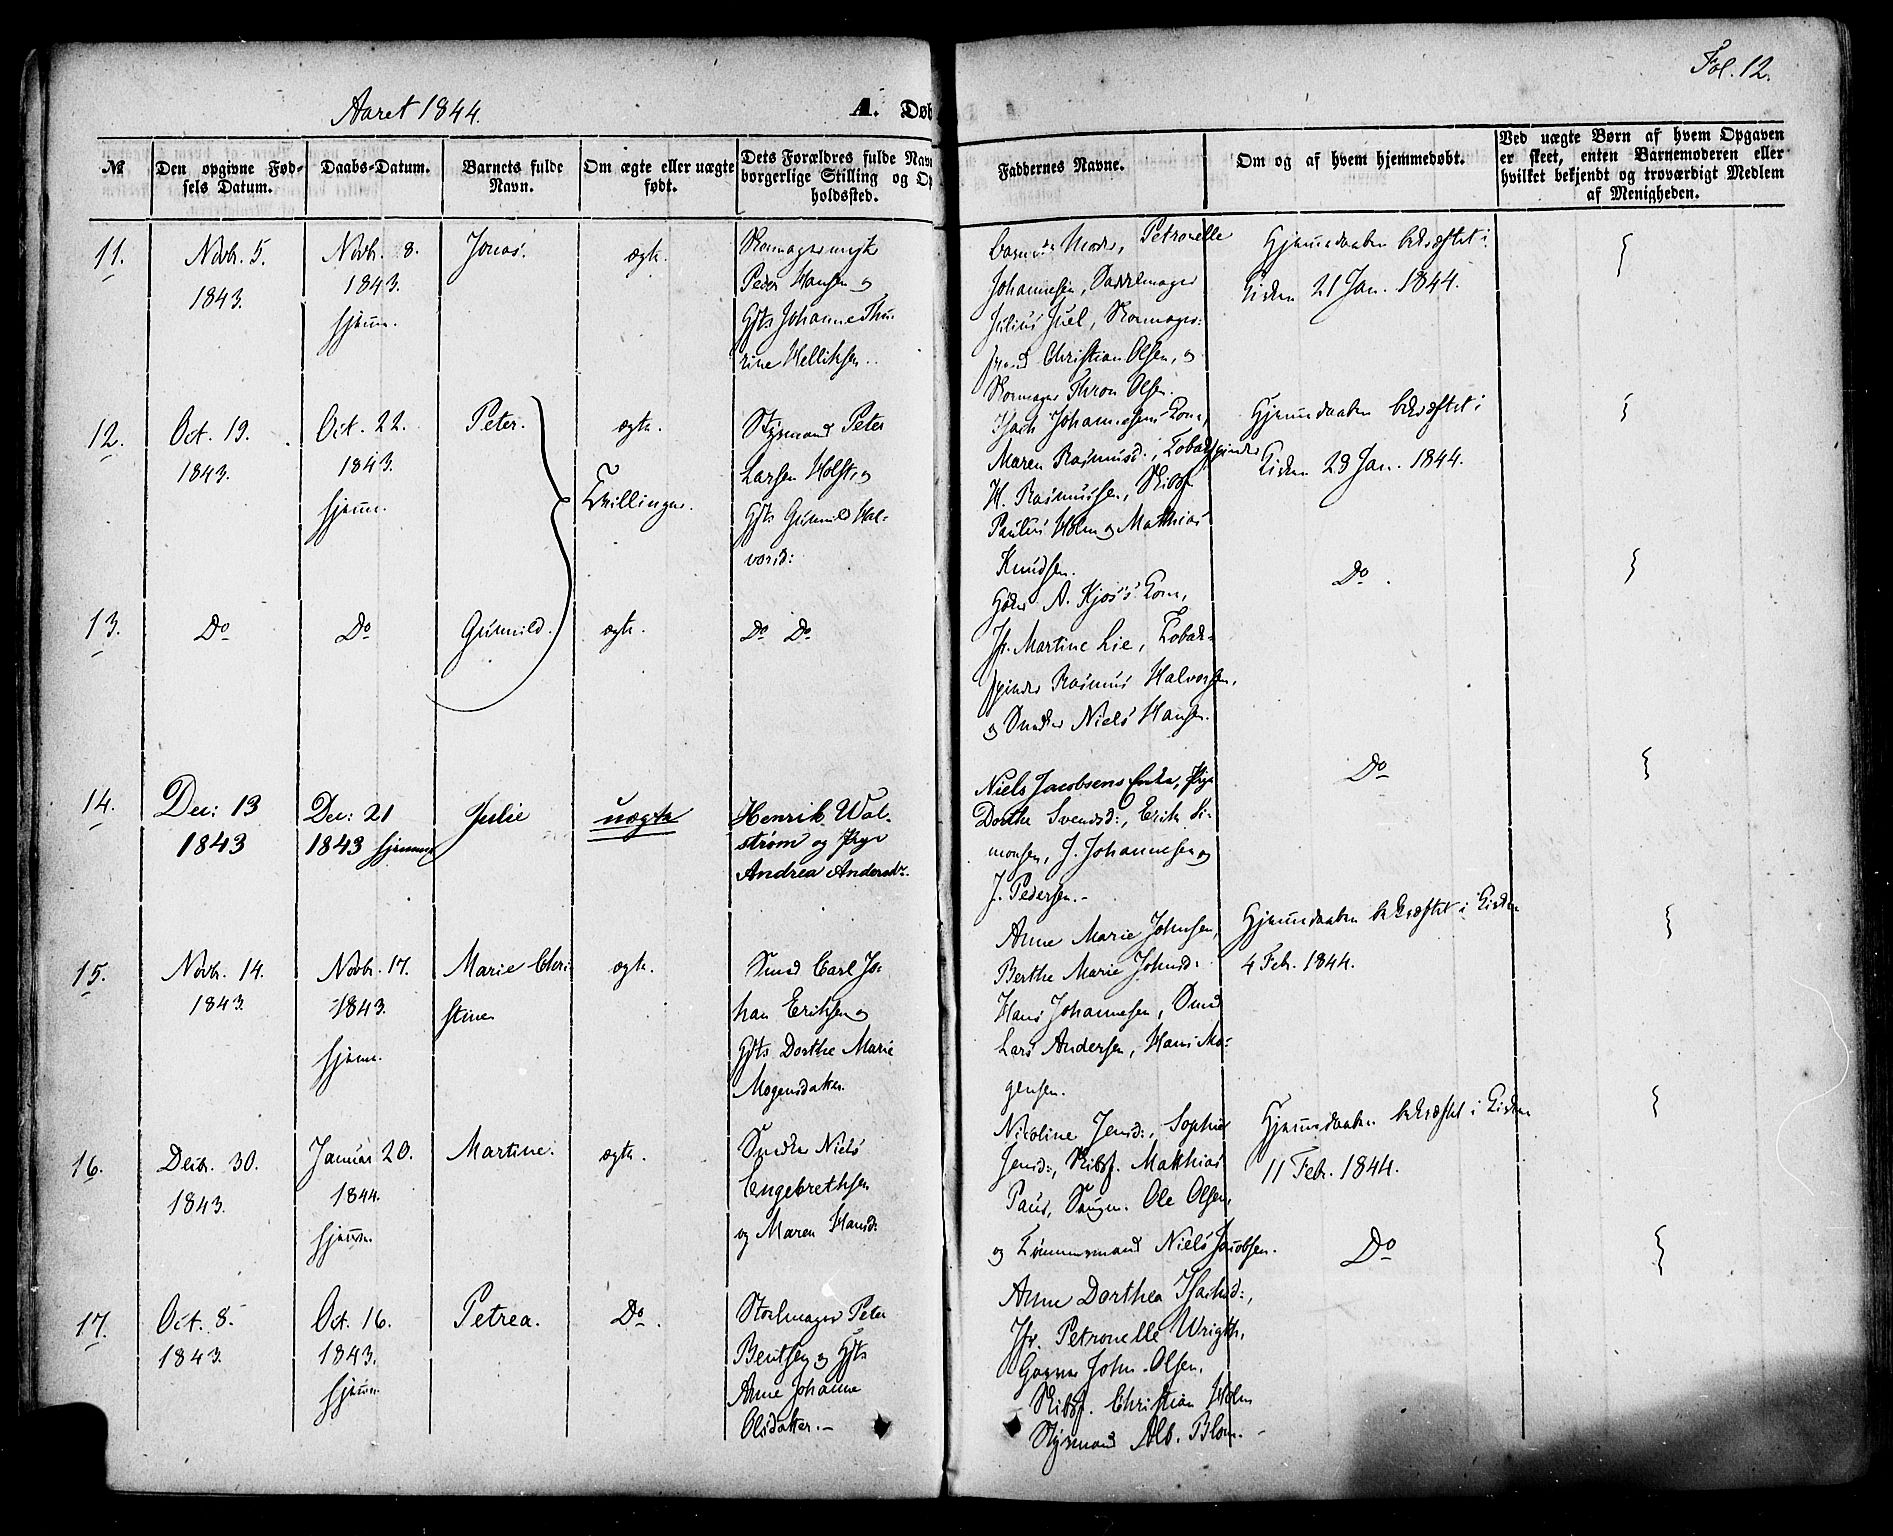 Fol. 12.
Aaret 1844.
A. Døb
№
Den opgivne Fød-
sels Datum.
Daabs-Datum.
Barnets fulde
Navn.
Om ægte eller uægte
født.
Dets Forældres fulde Navn
borgerlige Stilling og Op
holdssted.
Faddernes Navne.
Om og af hvem hjemmedøbt.
Ved uægte Børn af hvem Opgaven
er skeet, enten Barnemoderen eller
hvilket bekjendt og troværdigt Medlem
af Menigheden.
11.
Novbr. 5.
1843.
Novbr. 8.
1843.
hjemme.
Jonas.
ægte.
Peder Hansen og
Gjts Johanne Thu-
rine Helliksen.
Moder, Petronelle
Johannesen, Sadelmager
Julius Juel, Skomager-
svend Christian Olsen, og
Skomager Thron Olsen.
Hjemmedaaben bekræftet i
Kirken 21 Jan. 1844.
12.
Oct. 19.
1843.
Oct. 22.
1843.
hjemme.
Peter.
ægte.
Tvillinger.
Styrmand Peter
Larsen Holst og
Gjts Gunnild Hal-
vorsd:
Isach Johannesens Kone,
Maren Rasmusd:, Tobakspinder
H. Rasmussen, Skibsf.
Paulus Holm og Matthias
Knudsen.
Hjemmedaaben bekræftet i
Kirken 23 Jan. 1844.
13.
Do
Do
Gunnild.
ægte.
Do Do
A. Kjos's Kone,
Jfr. Martine Lie, Tobak-
spinder Rasmus Halvorsen,
og Snedker Niels Hansen.
Do.
14.
Dec: 13
1843
Dec: 21
1843 hjemme
Julie
uægte
Henrik Wal-
strøm og Pige
Andrea Andersdr.
Niels Jacobsens Enke, Pige
Dorthe Svendsd:, Erik Si-
monsen, J. Johannesen og
J. Pedersen.-
Do
15.
Novbr. 14.
1843.
Novbr. 17.
1843.
hjemme.
Marie Chri-
stine
ægte.
Smed Carl Jo-
han Eriksen og
Gjts Dorthe Marie
Mogensdatter.
Anne Marie Johnsen,
Berthe Marie Johnsd:
Hans Johannesen, Smed
Lars Andersen, Hans Mo-
gensen.
Hjemmedaaben bekræftet i Kirken
4 Febr. 1844.
16.
Decbr. 30.
1843.
Januar 20.
1844.
hjemme.
Martine.
ægte.
Snedker Niels
Engebrethsen
og Maren Hansd:
Nicoline Jensd:, Sophie
Jensd:, Skibsf. Matthias
Paus, Ole Olsen,
og Tømmermand Niels Jacobsen.
Hjemmedaaben bekræftet i Kirken
11 Febr. 1844.
17.
Oct. 8.
1843.
Oct. 16.
1843.
hjemme
Petrea.
Do.
Stolmager Peter
Bentsen og Gjts
Anne Johanne
Olsdatter.-
Anne Dorthea Isachsd:,
Jfr. Petronelle Wrigth,
John Olsen,
Skibsf. Christian Holm
Styrmand Alb. Blom.-
Do